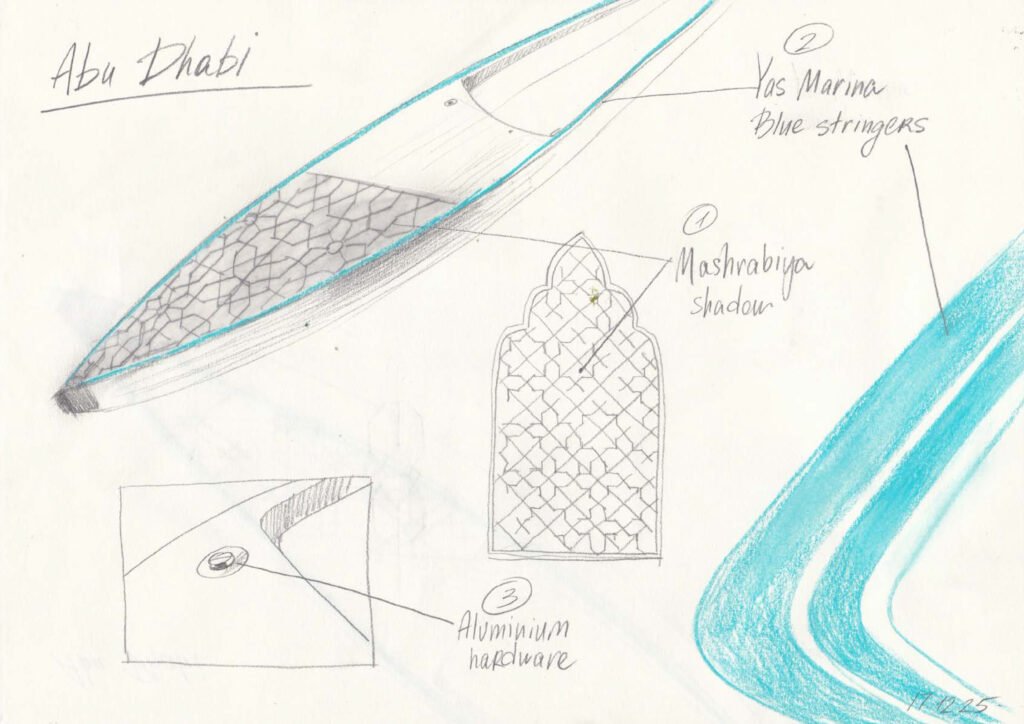 Abu Dhabi
2
Yas Marina
Blue stringers
1
Mashrabiya
shadow
3
Aluminium
hardware
17 12 25